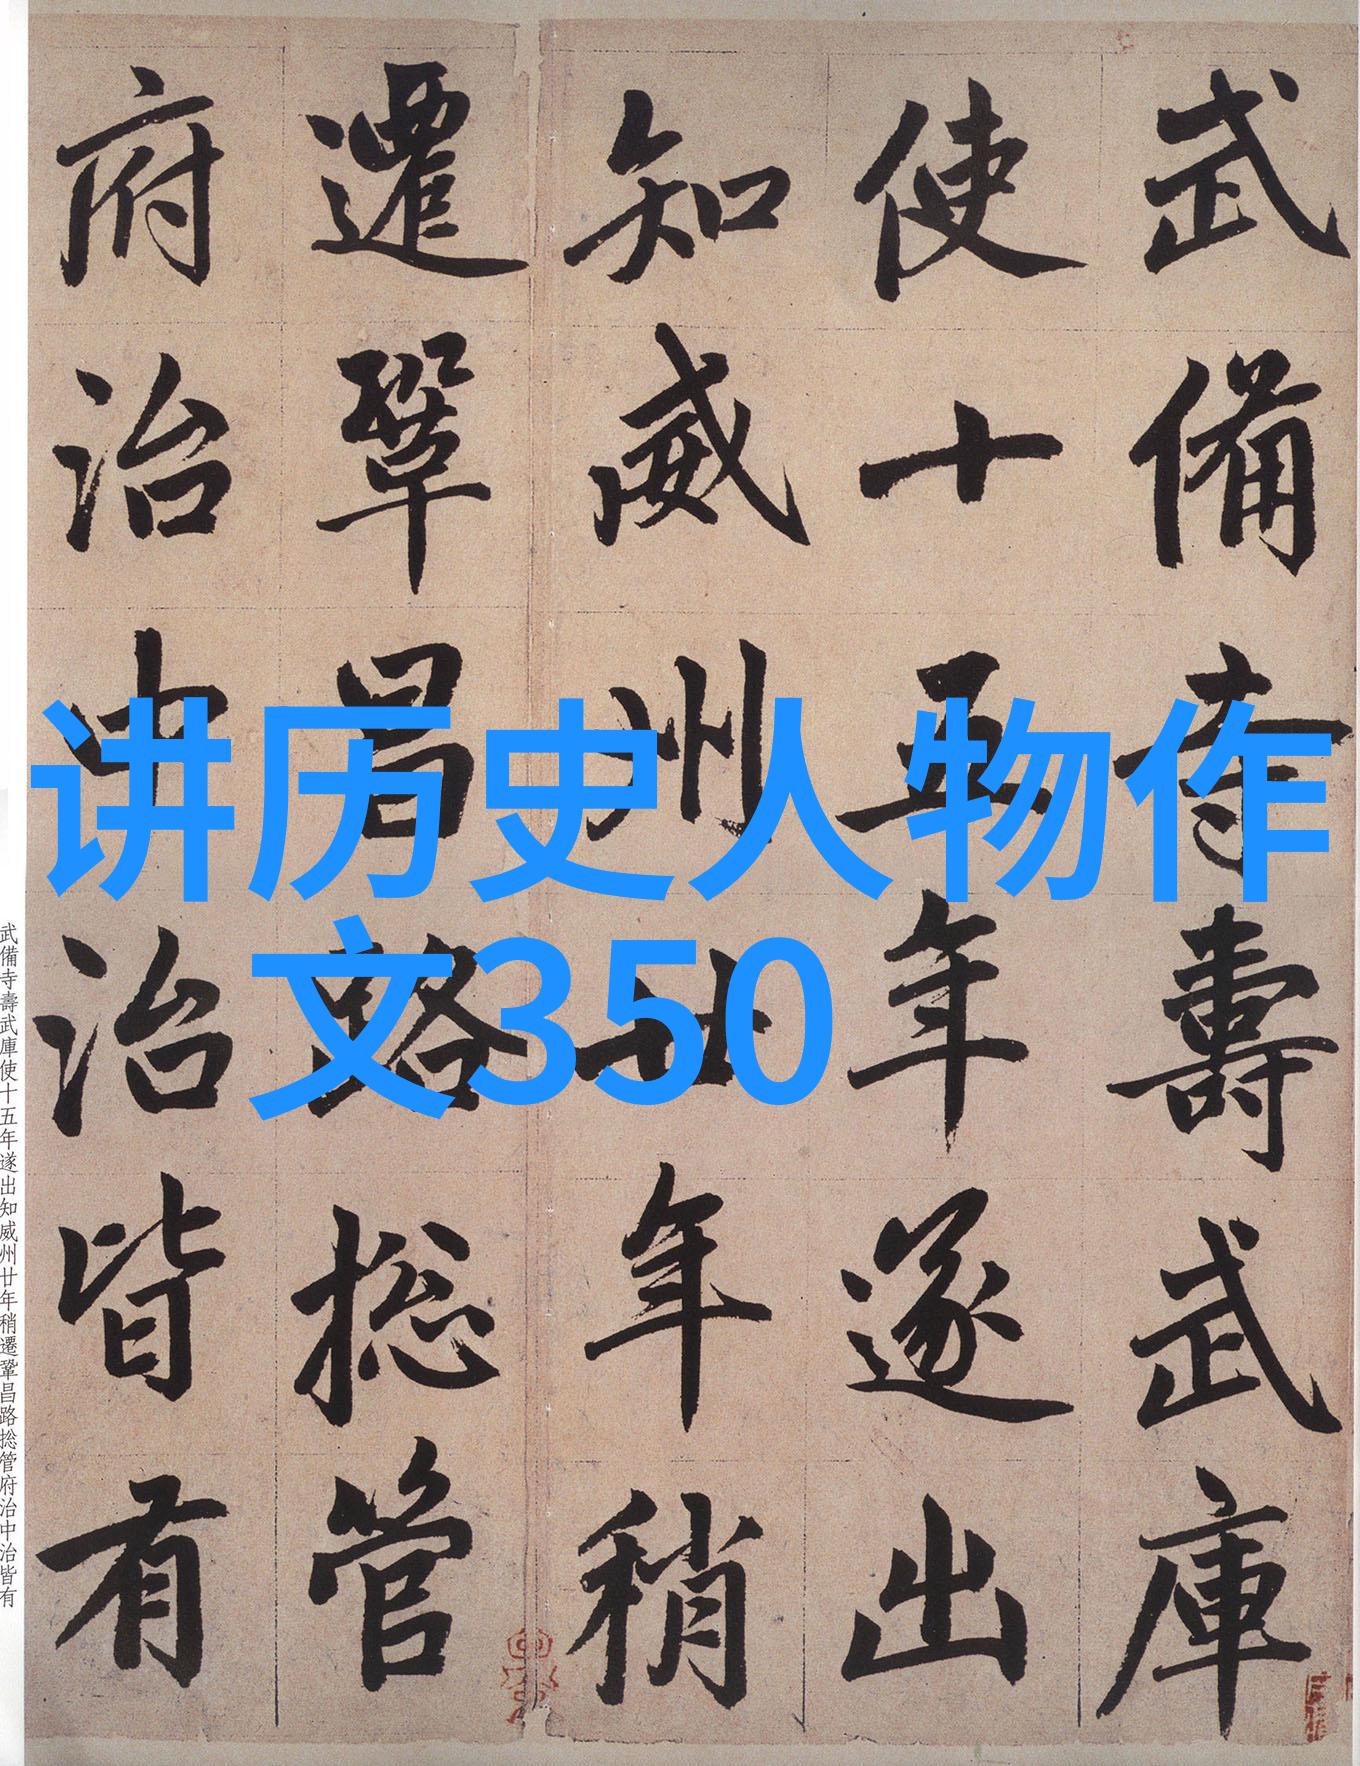 讲历史人物作
文350
武備寺壽武庫
使十五年遂出
知威州廿年稍
遷鞏昌路捴管
府治中治皆有
武備寺壽武庫使十五年遂出知威州廿年稍遷鞏昌路捴管府治中治皆有